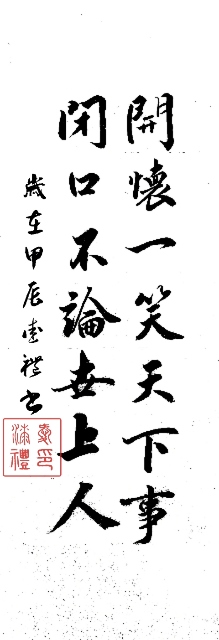 開懷一笑天下事
閉口不論世上人
歲在甲辰素禮书